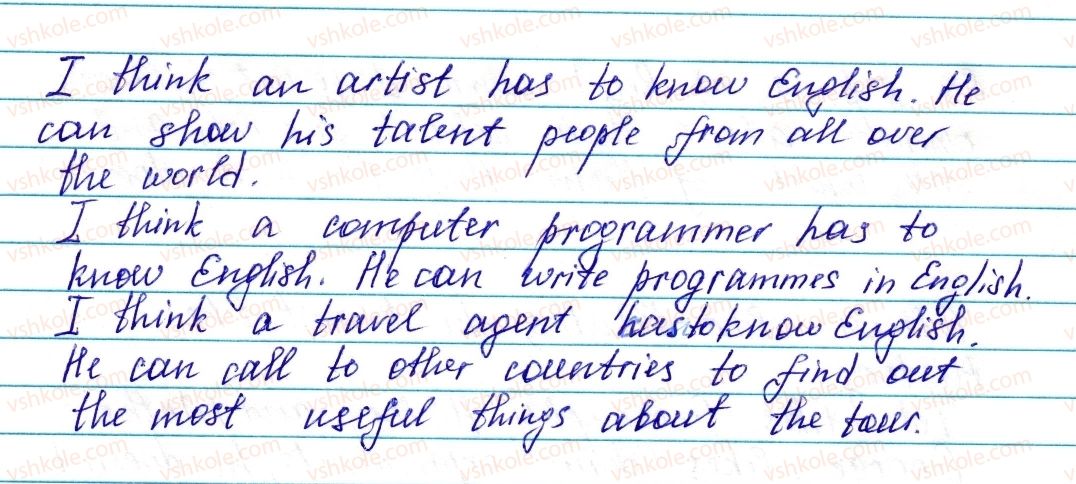 I think an artist has to know English. He
can show his talent people from all over
the world.
I think a computer programmer has to
know English. He can write programmes in English.
I think a travel agent has to know English.
He can call to other countries to find out
the most useful things about the tour.